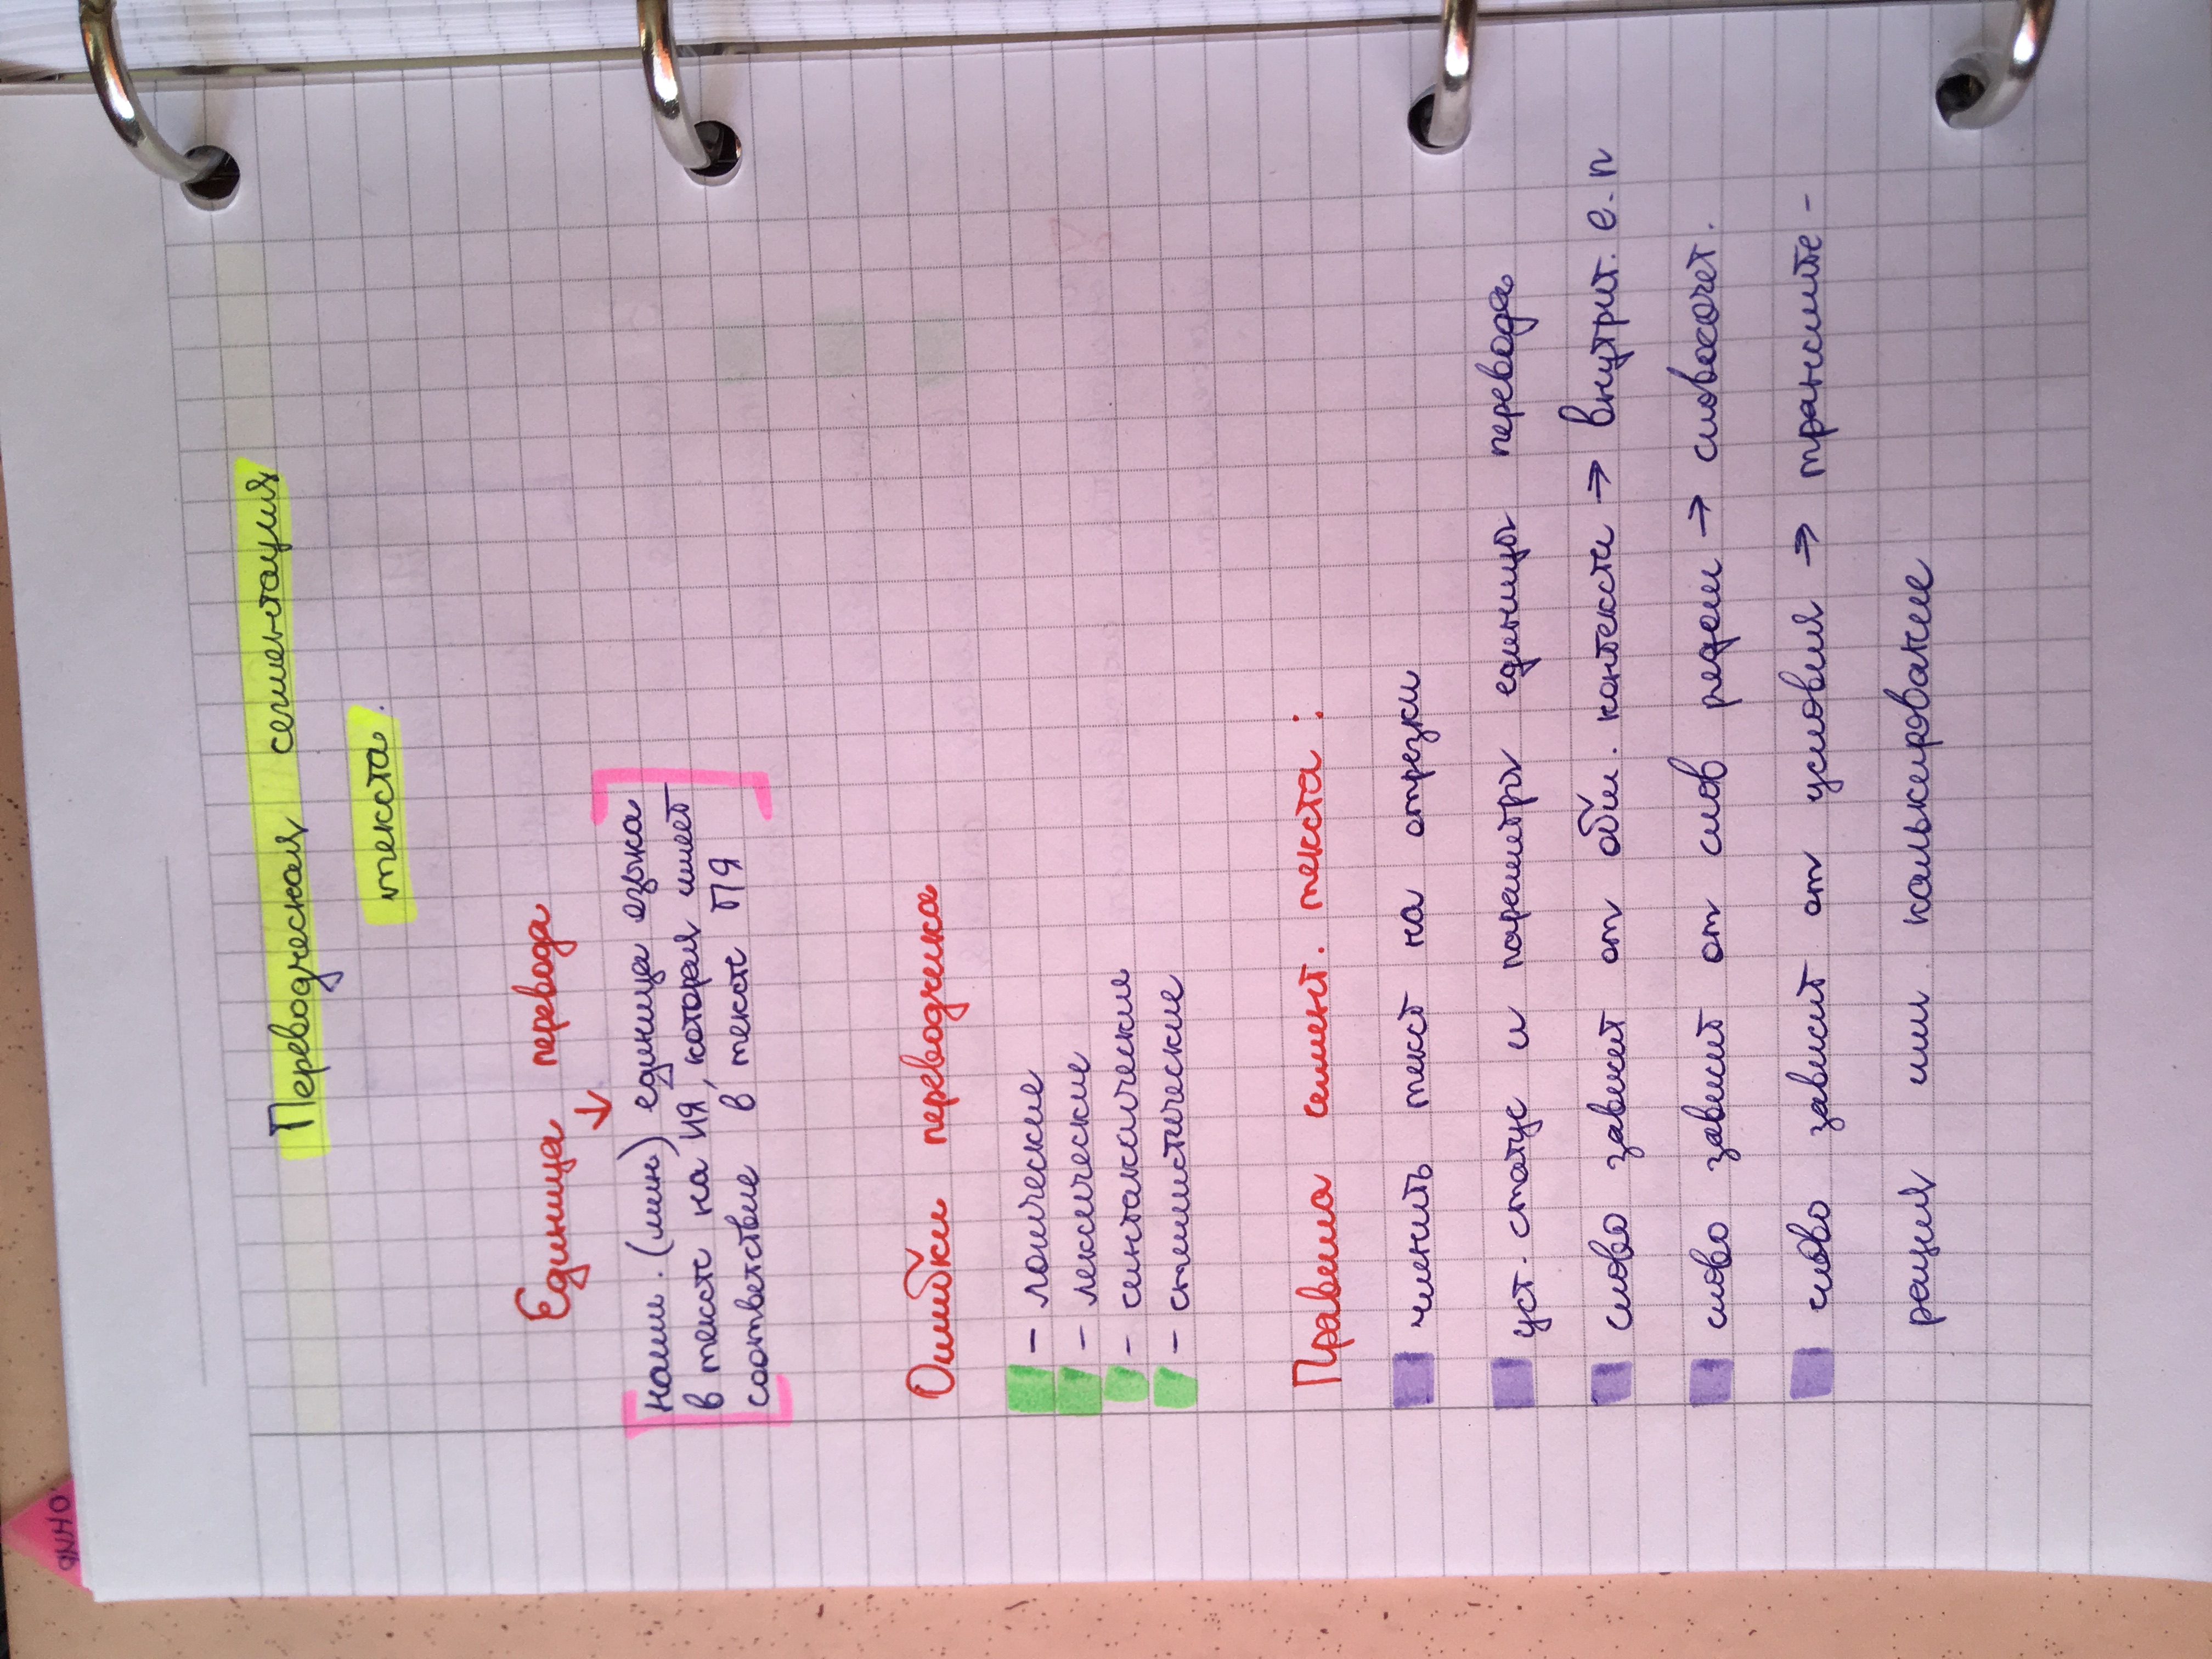 ОНИР
Переводческая сегментация
текста.
Единица перевода
↓
наим. (мин) единица языка
в тексте на ИЯ, которая имеет
соответствие в тексте ПЯ
Ошибки переводчика
– логические
– лексические
– синтаксические
– стилистические
Правила сегмент. текста:
членить текст на отрезки
уст. статус и параметры единицы перевода
слово зависит от общ. контекста → внутрит. е. п
слово зависит от слов рядом → словосочет.
слово зависит от условия → транслите-
рация или калькирование